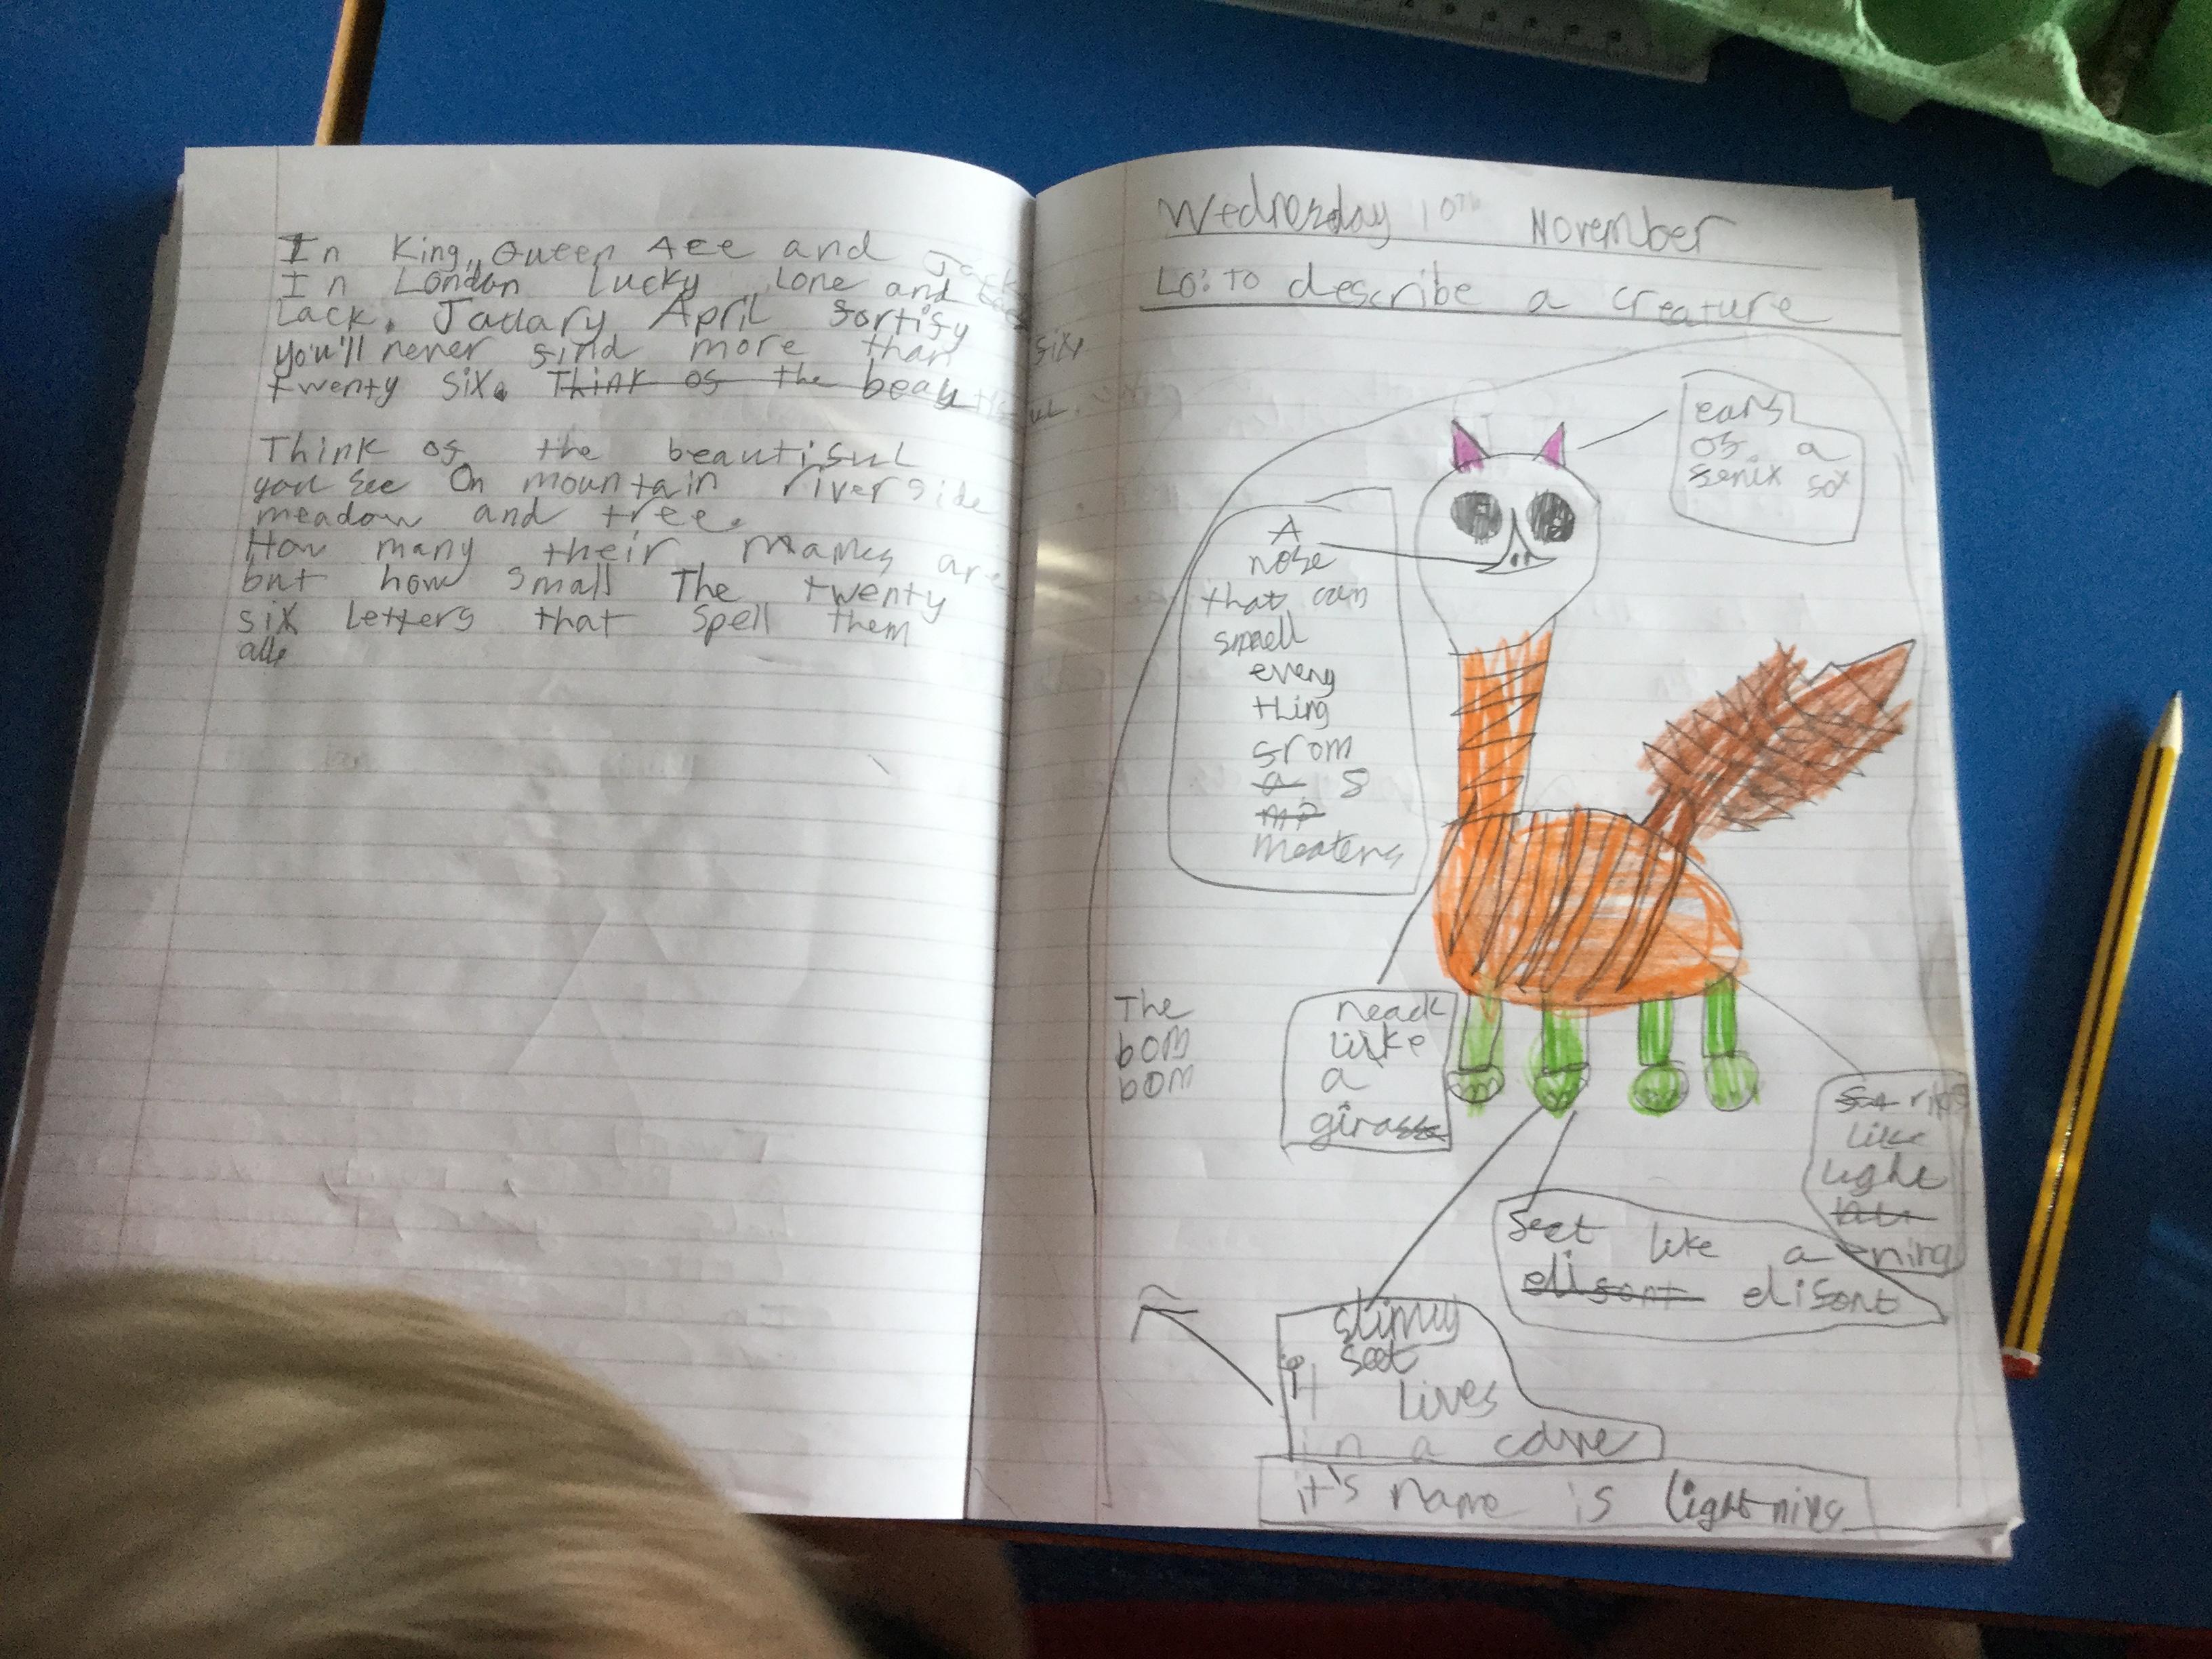 In King, Queen Ace and Jack
In London Lucky Lone and
Lack. Jauary April fortify
you'll never find more than
twenty six. Think of the beau
Think of the beautiful
you see On mountain riverside
meadow and tree.
How many their names are
but how small The twenty
six Letters that spell them
all
Wednesday 10TH November
Lo: To describe a creature
ears
of a
fenix fox
A
nose
that can
smell
every
thing
from
a 8
m?
meaters
The
bom
bom
neack
like
a
giraffe
ribs
like
light
ning
feet like a
elifont elifont
slimy
feet
it lives
in a cave
it's name is lightning